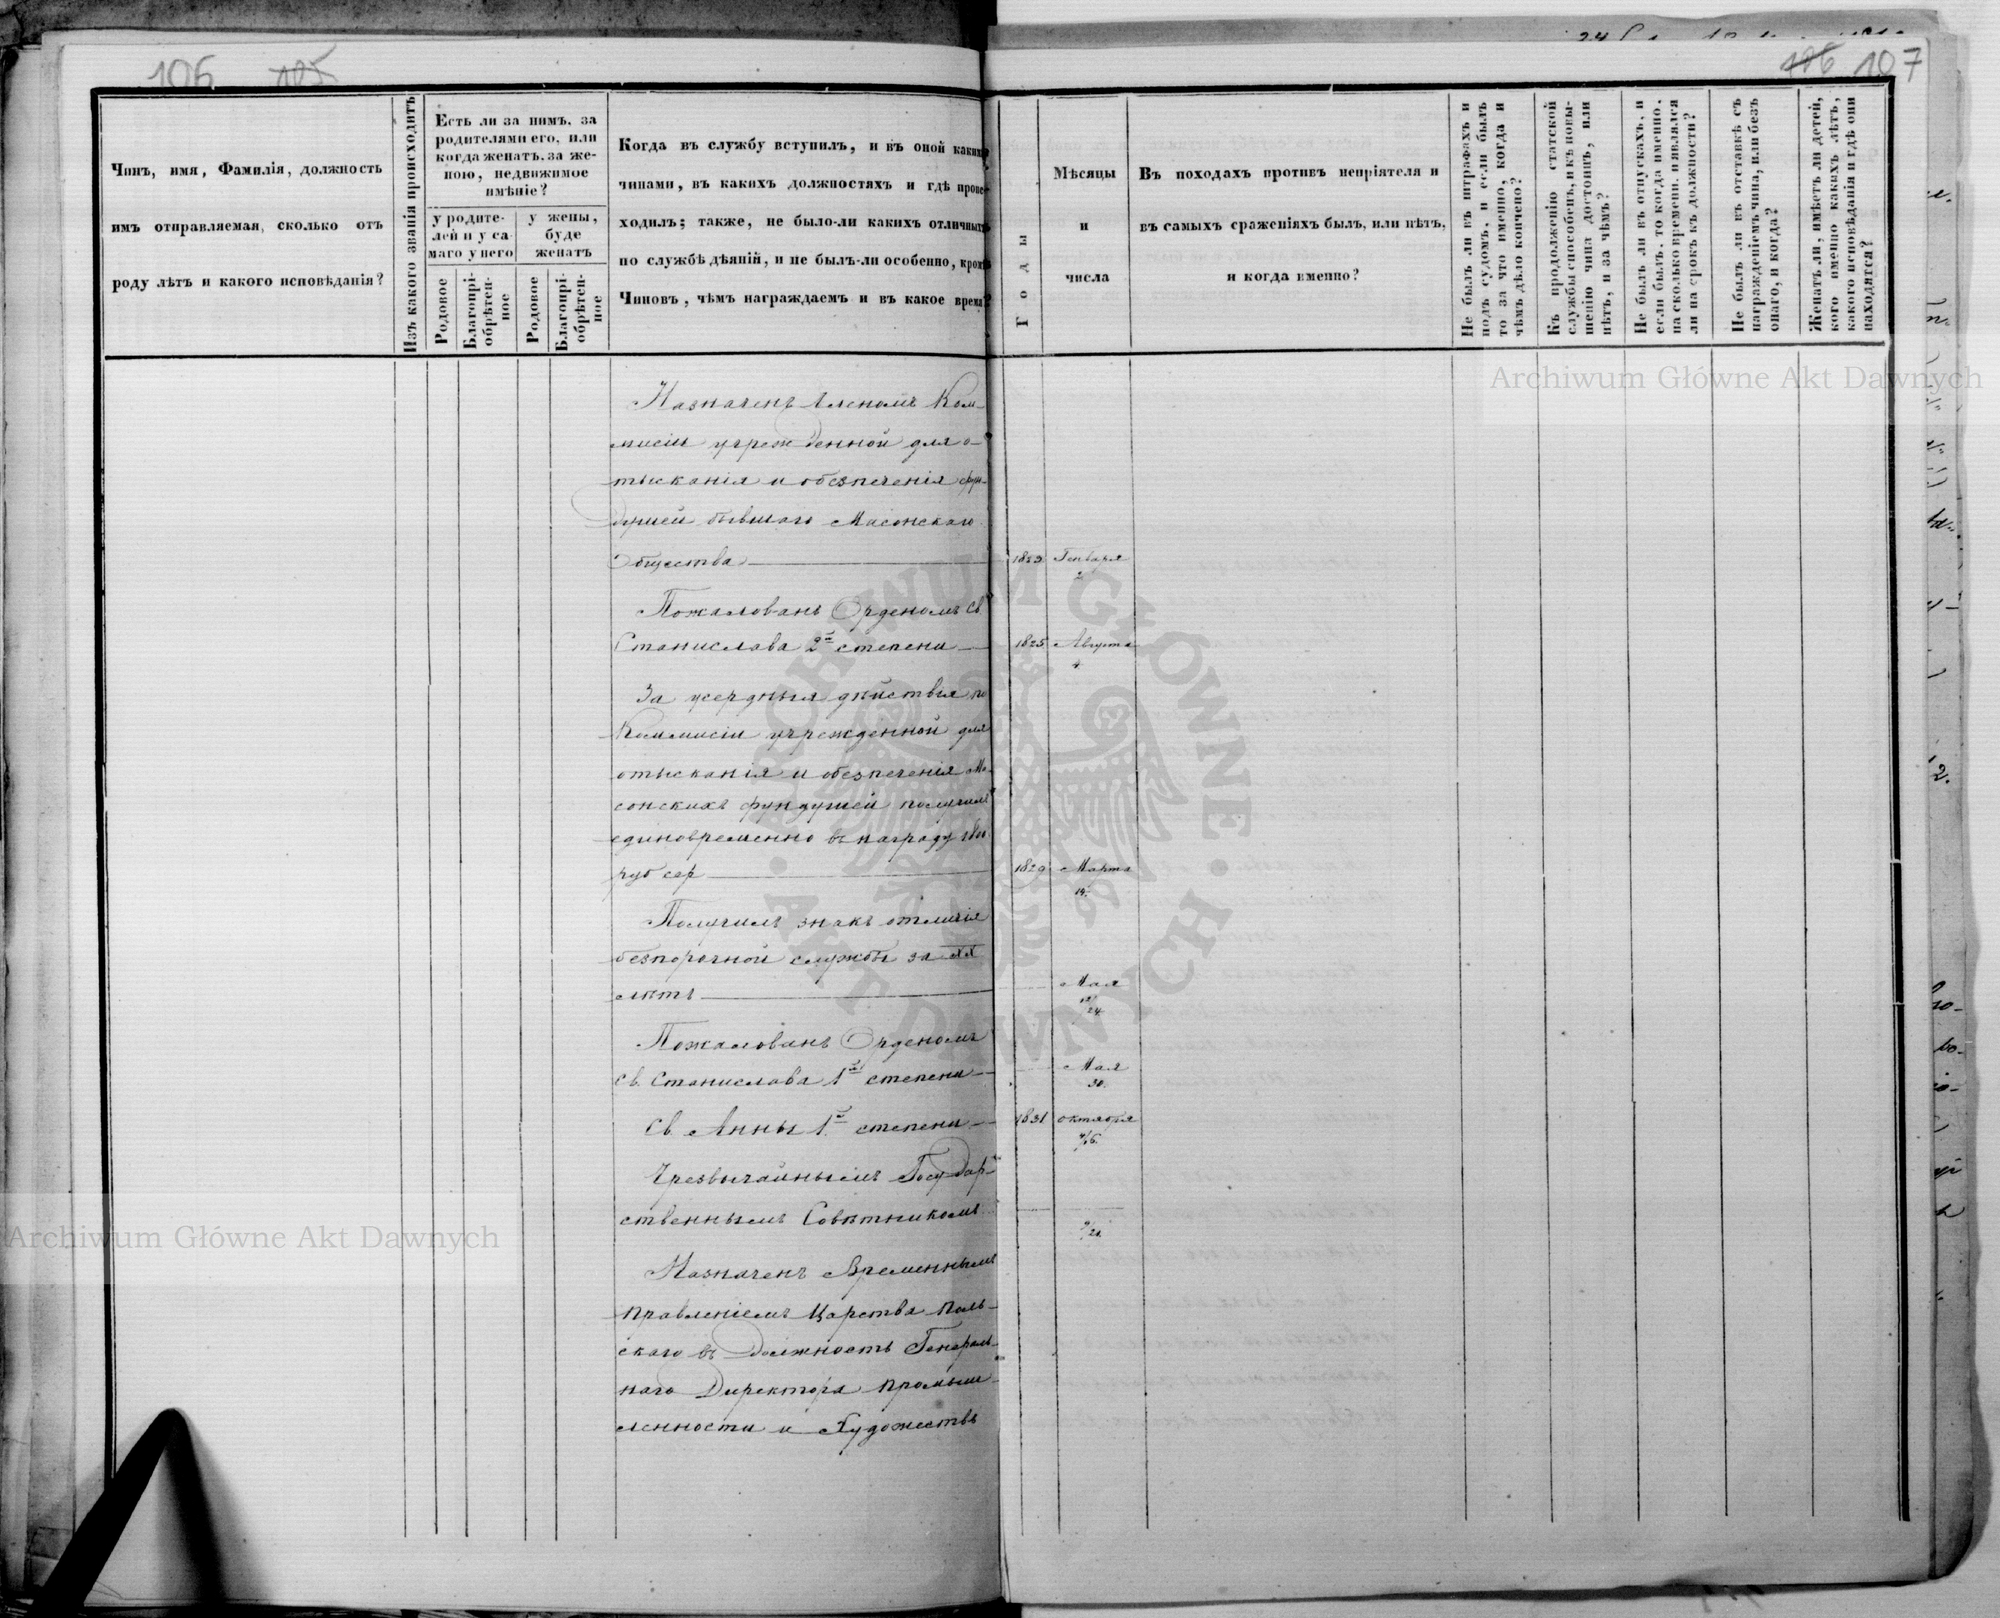 106 105
106 107
Чинъ, имя, Фамилія, должность
имъ отправляемая, сколько отъ
роду лѣтъ и какого исповѣданія?
Изъ какого званія происходитъ
Есть ли за нимъ, за
родителями его, или
когда женатъ, за же-
ною, недвижимое
имѣніе?
у родите-
лей и у са-
маго у него
у жены,
буде
женатъ
Родовое
Благопрі-
обрѣтен-
ное
Родовое
Благопрі-
обрѣтен-
ное
Когда въ службу вступилъ, и въ оной какими
чинами, въ какихъ должностяхъ и гдѣ проис-
ходилъ; также, не было-ли какихъ отличныхъ
по службѣ дѣяній, и не былъ-ли особенно, кромѣ
Чиновъ, чѣмъ награждаемъ и въ какое время?
Годы
Мѣсяцы
и
числа
Въ походахъ противъ непріятеля и
въ самыхъ сраженіяхъ былъ, или нѣтъ,
и когда именно?
Не былъ ли въ штрафахъ и
подъ судомъ, и если былъ
то за что именно, когда и
чѣмъ дѣло кончено?
Къ продолженію статской
службы способенъ, и къ повы-
шенію чина достоинъ, или
нѣтъ, и за чѣмъ?
Не былъ ли въ отпускахъ, и
если былъ, то когда именно,
на сколько времени, и явился
ли на срокъ къ должности?
Не былъ ли въ отставкѣ съ
награжденіемъ чина, или безъ
онаго, и когда?
Женатъ ли, имѣетъ ли дѣтей,
кого именно какихъ лѣтъ,
какого исповѣданія и гдѣ они
находятся?
Назначенъ Членомъ Ком-
мисіи учрежденной для о-
тысканія и обезпеченія фун-
душей бывшаго Масонскаго
Общества 1823 Генваря
2
Пожалованъ Орденомъ Св.
Станислава 2й степени 1825 Августа
4
За усердныя дѣйствія по
Коммисіи учрежденной для
отысканія и обезпеченія Ма-
сонскихъ фундушей получилъ
единовременно въ награду 1800
руб сер 1829 Марта
19.
Получилъ знакъ отличія
безпорочной службы за XX
лѣтъ Мая
12/24
Пожалованъ Орденомъ
Св. Станислава 1й степени Мая
30.
Св. Анны 1й степени 1831 Октября
4/16.
Чрезвычайнымъ Государ-
ственнымъ Совѣтникомъ
9/21.
Назначенъ Временнымъ
Правленіемъ Царства Поль-
скаго въ Должность Генераль-
наго Директора Промыш-
ленности и Художествъ
Archiwum Główne Akt Dawnych
Archiwum Główne Akt Dawnych
ARCHIWUM GŁÓWNE · AKT DAWNYCH ·